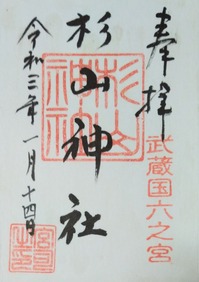 奉拝
武蔵国六之宮
杉山神社
杉山神社
令和三年一月十四日
宮司之印